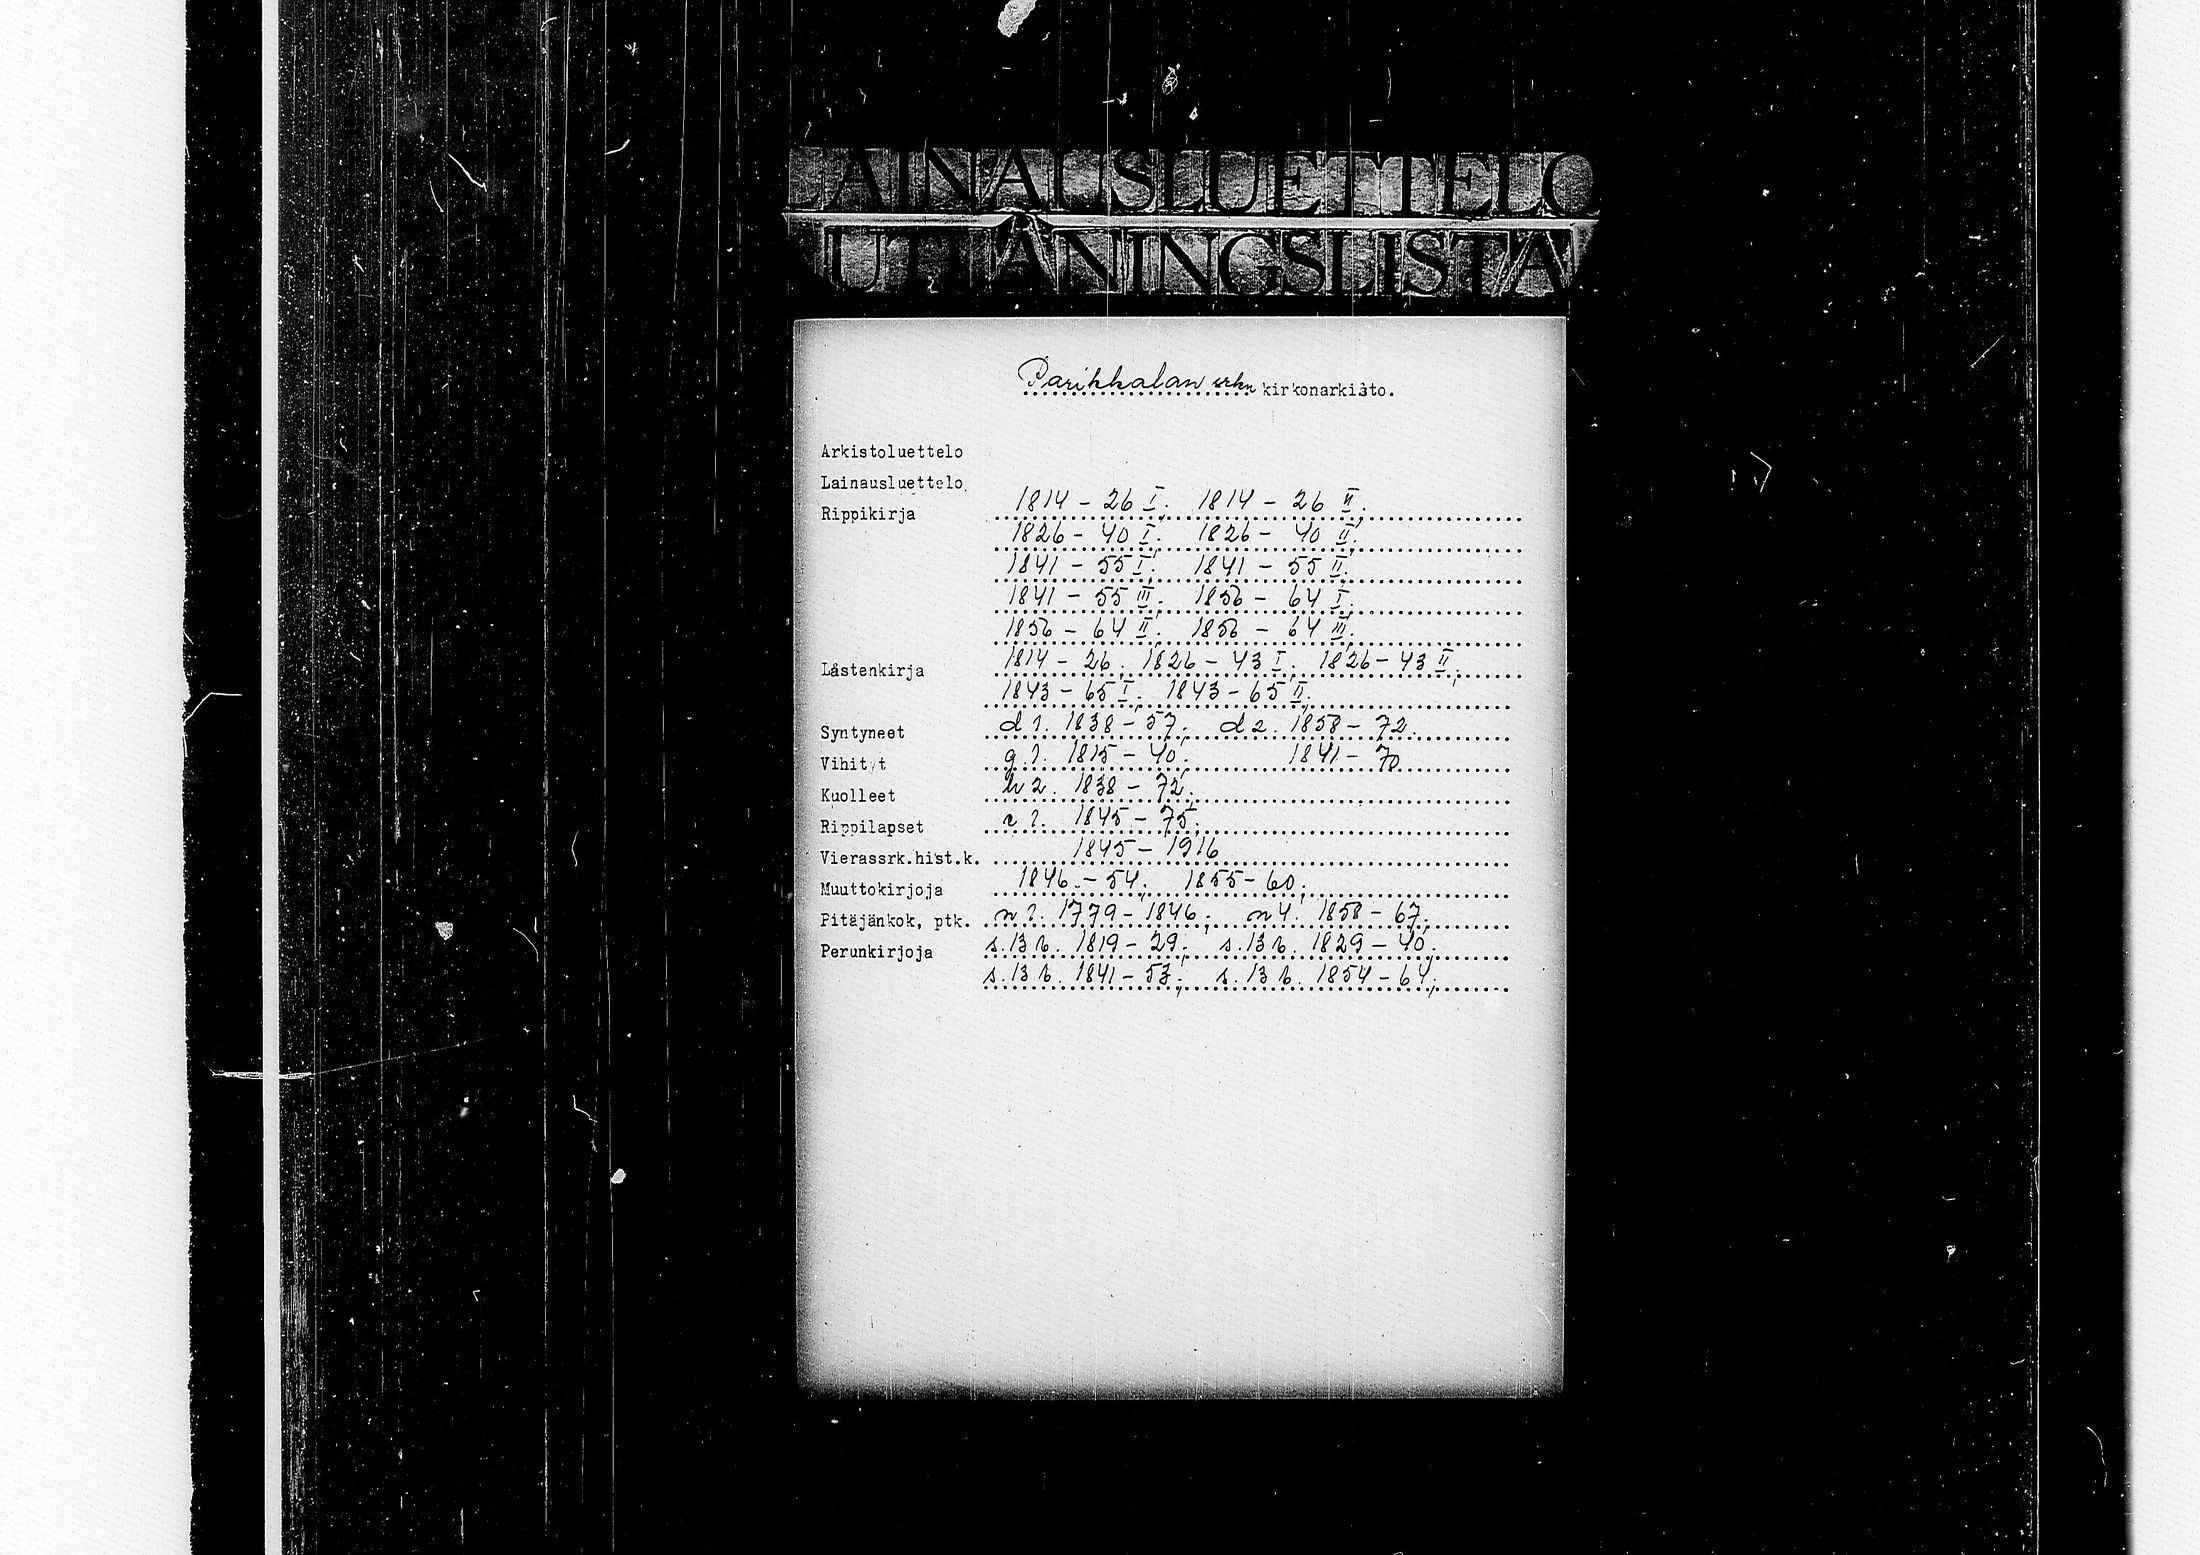 LAINAUSLUETTELO
UTLÅNINGSLISTA
Parikkalan srkn kirkonarkisto.
Arkistoluettelo
Lainausluettelo
Rippikirja 1814 - 26 I; 1814 - 26 II;
1826 - 40 I; 1826 - 40 II;
1841 - 55 I; 1841 - 55 II;
1841 - 55 III; 1856 - 64 I;
1856 - 64 II; 1856 - 64 III;
Lastenkirja 1814 - 26; 1826 - 43 I; 1826 - 43 II;
1843 - 65 I; 1843 - 65 II;
Syntyneet d 1. 1838 - 57; d 2. 1858 - 72.
Vihityt g. 1. 1815 - 40; 1841 - 70
Kuolleet h 2. 1838 - 72;
Rippilapset 1. 1845 - 75;
Vierassrk.hist.k. 1845 - 1916
Muuttokirjoja 1846 - 54; 1855 - 60;
Pitäjänkok, ptk. n 1. 1779 - 1846; n 4. 1858 - 67;
Perunkirjoja 1819 - 29; 1829 - 40;
1841 - 53; 1854 - 64;